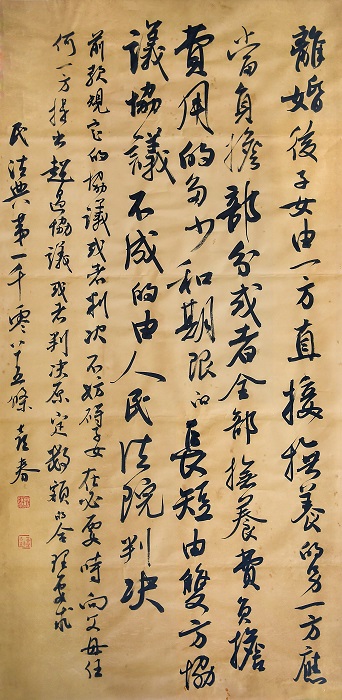 離婚後子女由一方直接撫養的另一方應
當負擔部分或者全部撫養費負擔
費用的多少和期限的長短由雙方協
議協議不成的由人民法院判决
前款規定的協議或者判决不妨碍子女在必要時向父母任
何一方提出超過協議或者判决原定數額的合理要求
民法典第一千零八十五條 春